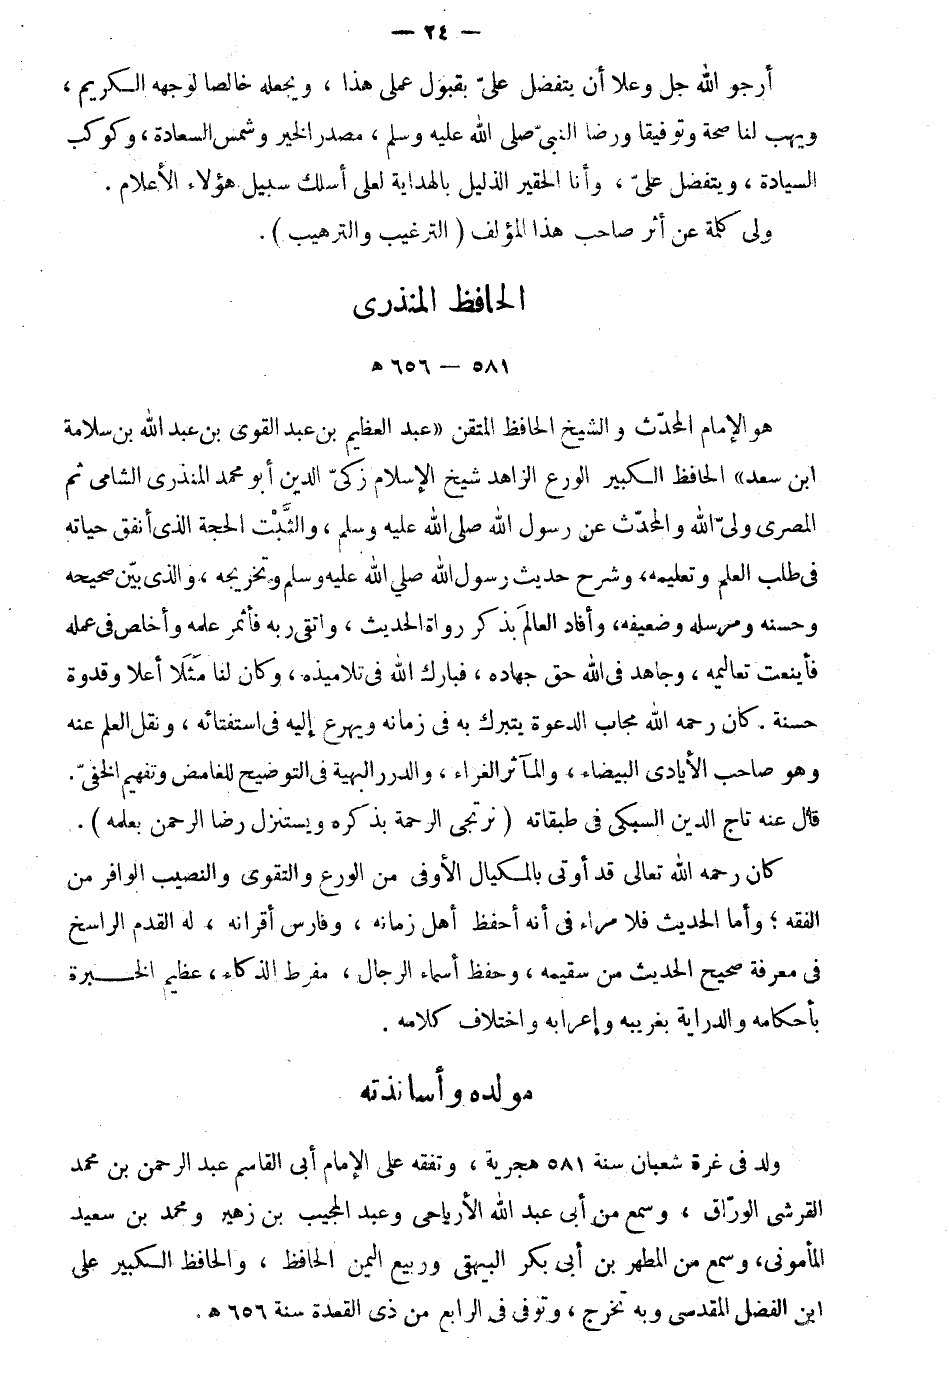 — ٢٤ —
أرجو الله جل وعلا أن يتفضل علىّ بقبول عملى هذا ، ويجعله خالصا لوجهه الكريم ،
ويهب لنا صحة وتوفيقا ورضا النبىّ صلى الله عليه وسلم ، مصدر الخير وشمس السعادة ، وكوكب
السيادة ، ويتفضل علىّ ، وأنا الحقير الذليل بالهداية لعلى أسلك سبيل هؤلاء الأعلام .
ولى كلمة عن أثر صاحب هذا المؤلف ( الترغيب والترهيب ) .
الحافظ المنذرى
٥٨١ — ٦٥٦ هـ
هو الإمام المحدّث والشيخ الحافظ المتقن «عبد العظيم بن عبد القوى بن عبد الله بن سلامة
ابن سعد» الحافظ الكبير الورع الزاهد شيخ الإسلام زكىّ الدين أبو محمد المنذرى الشامى ثم
المصرى ولىّ الله والمحدّث عن رسول الله صلى الله عليه وسلم ، والثَّبْت الحجة الذى أنفق حياته
فى طلب العلم وتعليمه، وشرح حديث رسول الله صلي الله عليه وسلم وتخريجه ، والذى بيّن صحيحه
وحسنه ومرسله وضعيفه، وأفاد العالمَ بذكر رواة الحديث ، واتقى ربه فأثمر علمه وأخلص فى عمله
فأينعت تعاليمه ، وجاهد فى الله حق جهاده ، فبارك الله فى تلاميذه ، وكان لنا مَثَلَا أعلا وقدوة
حسنة . كان رحمه الله مجاب الدعوة يتبرك به فى زمانه ويهرع إليه فى استفتائه ، ونقل العلم عنه
وهو صاحب الأيادى البيضاء ، والمآثر الغراء ، والدرر البهية فى التوضيح للغامض وتفهيم الخفىّ .
قال عنه تاج الدين السبكى فى طبقاته ( نرتجى الرحمة بذكره ويستنزل رضا الرحمن بعلمه ) .
كان رحمه الله تعالى قد أوتى بالمكيال الأوفى من الورع والتقوى والنصيب الوافر من
الفقه ؛ وأما الحديث فلا مراء فى أنه أحفظ أهل زمانه ، وفارس أقرانه ، له القدم الراسخ
فى معرفة صحيح الحديث من سقيمه ، وحفظ أسماء الرجال ، مفرط الذكاء ، عظيم الخبرة
بأحكامه والدراية بغريبه وإعرابه واختلاف كلامه .
مولده وأساتذته
ولد فى غرة شعبان سنة ٥٨١ هجرية ، وتفقه على الإمام أبى القاسم عبد الرحمن بن محمد
القرشى الورّاق ، وسمع من أبى عبد الله الأرياحى وعبد المجيب بن زهير ومحمد بن سعيد
المأمونى، وسمع من المطهر بن أبى بكر البيهقى وربيع اليمن الحافظ ، والحافظ الكبير على
ابن الفضل المقدسى وبه تخرج ، وتوفى فى الرابع من ذى القعدة سنة ٦٥٦ هـ .